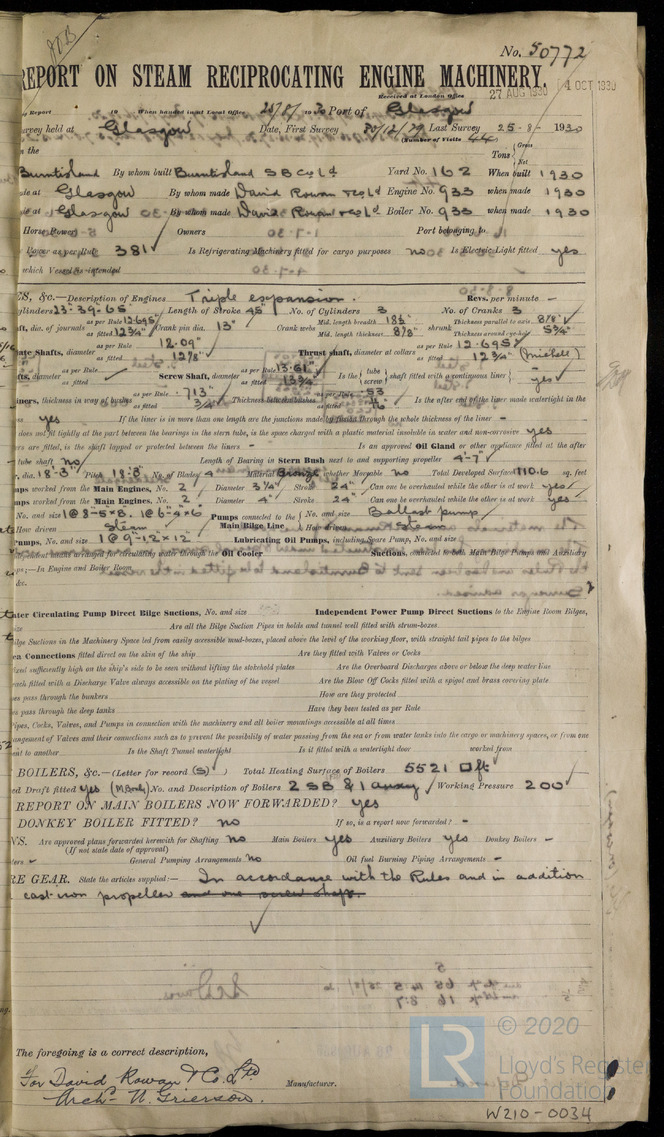 No. 50772
REPORT ON STEAM RECIPROCATING ENGINE MACHINERY.
Received at London Office 27 AUG 1930 4 OCT 1930
Report 19 When handed in at Local Office 26/8/1930 Port of Glasgow
Survey held at Glasgow Date, First Survey 30/12/29 Last Survey 25-8-1930
(Number of Visits 44)
on the Tons Gross Net
Burntisland By whom built Burntisland S B Co Ld Yard No. 162 When built 1930
made at Glasgow By whom made David Rowan & Co Ld Engine No. 933 when made 1930
made at Glasgow By whom made David Rowan & Co Ld Boiler No. 933 when made 1930
Horse Power Owners Port belonging to
Power as per Rule 381 Is Refrigerating Machinery fitted for cargo purposes no Is Electric Light fitted yes
which Vessel is intended
ES, &c.—Description of Engines Triple expansion. Revs. per minute -
Cylinders 23"-39"-65" Length of Stroke 45" No. of Cylinders 3 No. of Cranks 3
dia. of journals as per Rule 12.695 as fitted 12 3/4" Crank pin dia. 13" Crank webs Mid. length breadth 18 1/2" Mid. length thickness 8 1/8" shrunk Thickness parallel to axis 8 1/8" Thickness around eye-hole 5 3/4"
ate Shafts, diameter as per Rule 12.09" as fitted 12 1/8" Thrust shaft, diameter at collars as per Rule 12.695 as fitted 12 3/4 (Michell)
diameter as per Rule as fitted Screw Shaft, diameter as per Rule 13.61" as fitted 13 3/4" Is the tube screw shaft fitted with a continuous liner yes
iners, thickness in way of bushes as per Rule .713" as fitted 3/4" Thickness between bushes as per Rule .53 as fitted Is the after end of the liner made watertight in the
yes If the liner is in more than one length are the junctions made by fusion through the whole thickness of the liner -
does not fit tightly at the part between the bearings in the stern tube, is the space charged with a plastic material insoluble in water and non-corrosive yes
ers are fitted, is the shaft lapped or protected between the liners - Is an approved Oil Gland or other appliance fitted at the after
tube shaft no Length of Bearing in Stern Bush next to and supporting propeller 4'-7"
dia. 18'-3" Pitch 18'-3" No. of Blades 4 Material Bronze whether Moveable no Total Developed Surface 110.6 sq. feet
umps worked from the Main Engines, No. 2 Diameter 3 3/4" Stroke 24" Can one be overhauled while the other is at work yes
umps worked from the Main Engines, No. 2 Diameter 4" Stroke 24" Can one be overhauled while the other is at work yes
No. and size 1@8"-5"x8" 1@6"-4"x6" Pumps connected to the No. and size Ballast pump
How driven Steam Main Bilge Line How driven Steam
Pumps, No. and size 1@9"-12"x12" Lubricating Oil Pumps, including Spare Pump, No. and size
circulating water through the Oil Cooler Suctions, connected to both Main Bilge Pumps and Auxiliary
ps;—In Engine and Boiler Room
&c.
ater Circulating Pump Direct Bilge Suctions, No. and size Independent Power Pump Direct Suctions to the Engine Room Bilges,
size Are all the Bilge Suction Pipes in holds and tunnel well fitted with strum-boxes
ilge Suctions in the Machinery Space led from easily accessible mud-boxes, placed above the level of the working floor, with straight tail pipes to the bilges
ea Connections fitted direct on the skin of the ship Are they fitted with Valves or Cocks
ixed sufficiently high on the ship's side to be seen without lifting the stokehold plates Are the Overboard Discharges above or below the deep water line
each fitted with a Discharge Valve always accessible on the plating of the vessel Are the Blow Off Cocks fitted with a spigot and brass covering plate
es pass through the bunkers How are they protected
es pass through the deep tanks Have they been tested as per Rule
Pipes, Cocks, Valves, and Pumps in connection with the machinery and all boiler mountings accessible at all times
angement of Valves and their connections such as to prevent the possibility of water passing from the sea or from water tanks into the cargo or machinery spaces, or from one
ent to another Is the Shaft Tunnel watertight Is it fitted with a watertight door worked from
BOILERS, &c.—(Letter for record (S)) Total Heating Surface of Boilers 5521 □ ft
ed Draft fitted yes (M.Body) No. and Description of Boilers 2 SB & 1 auxy Working Pressure 200
REPORT ON MAIN BOILERS NOW FORWARDED? yes
DONKEY BOILER FITTED? no If so, is a report now forwarded? -
NS. Are approved plans forwarded herewith for Shafting no Main Boilers yes Auxiliary Boilers yes Donkey Boilers -
(If not state date of approval)
General Pumping Arrangements no Oil fuel Burning Piping Arrangements -
RE GEAR. State the articles supplied:— In accordance with the Rules and in addition
cast iron propeller and one screw shaft.
The foregoing is a correct description,
For David Rowan & Co. Ltd
Archd. W. Grierson. Manufacturer.
LR © 2020
Lloyd's Register
Foundation
W210-0034